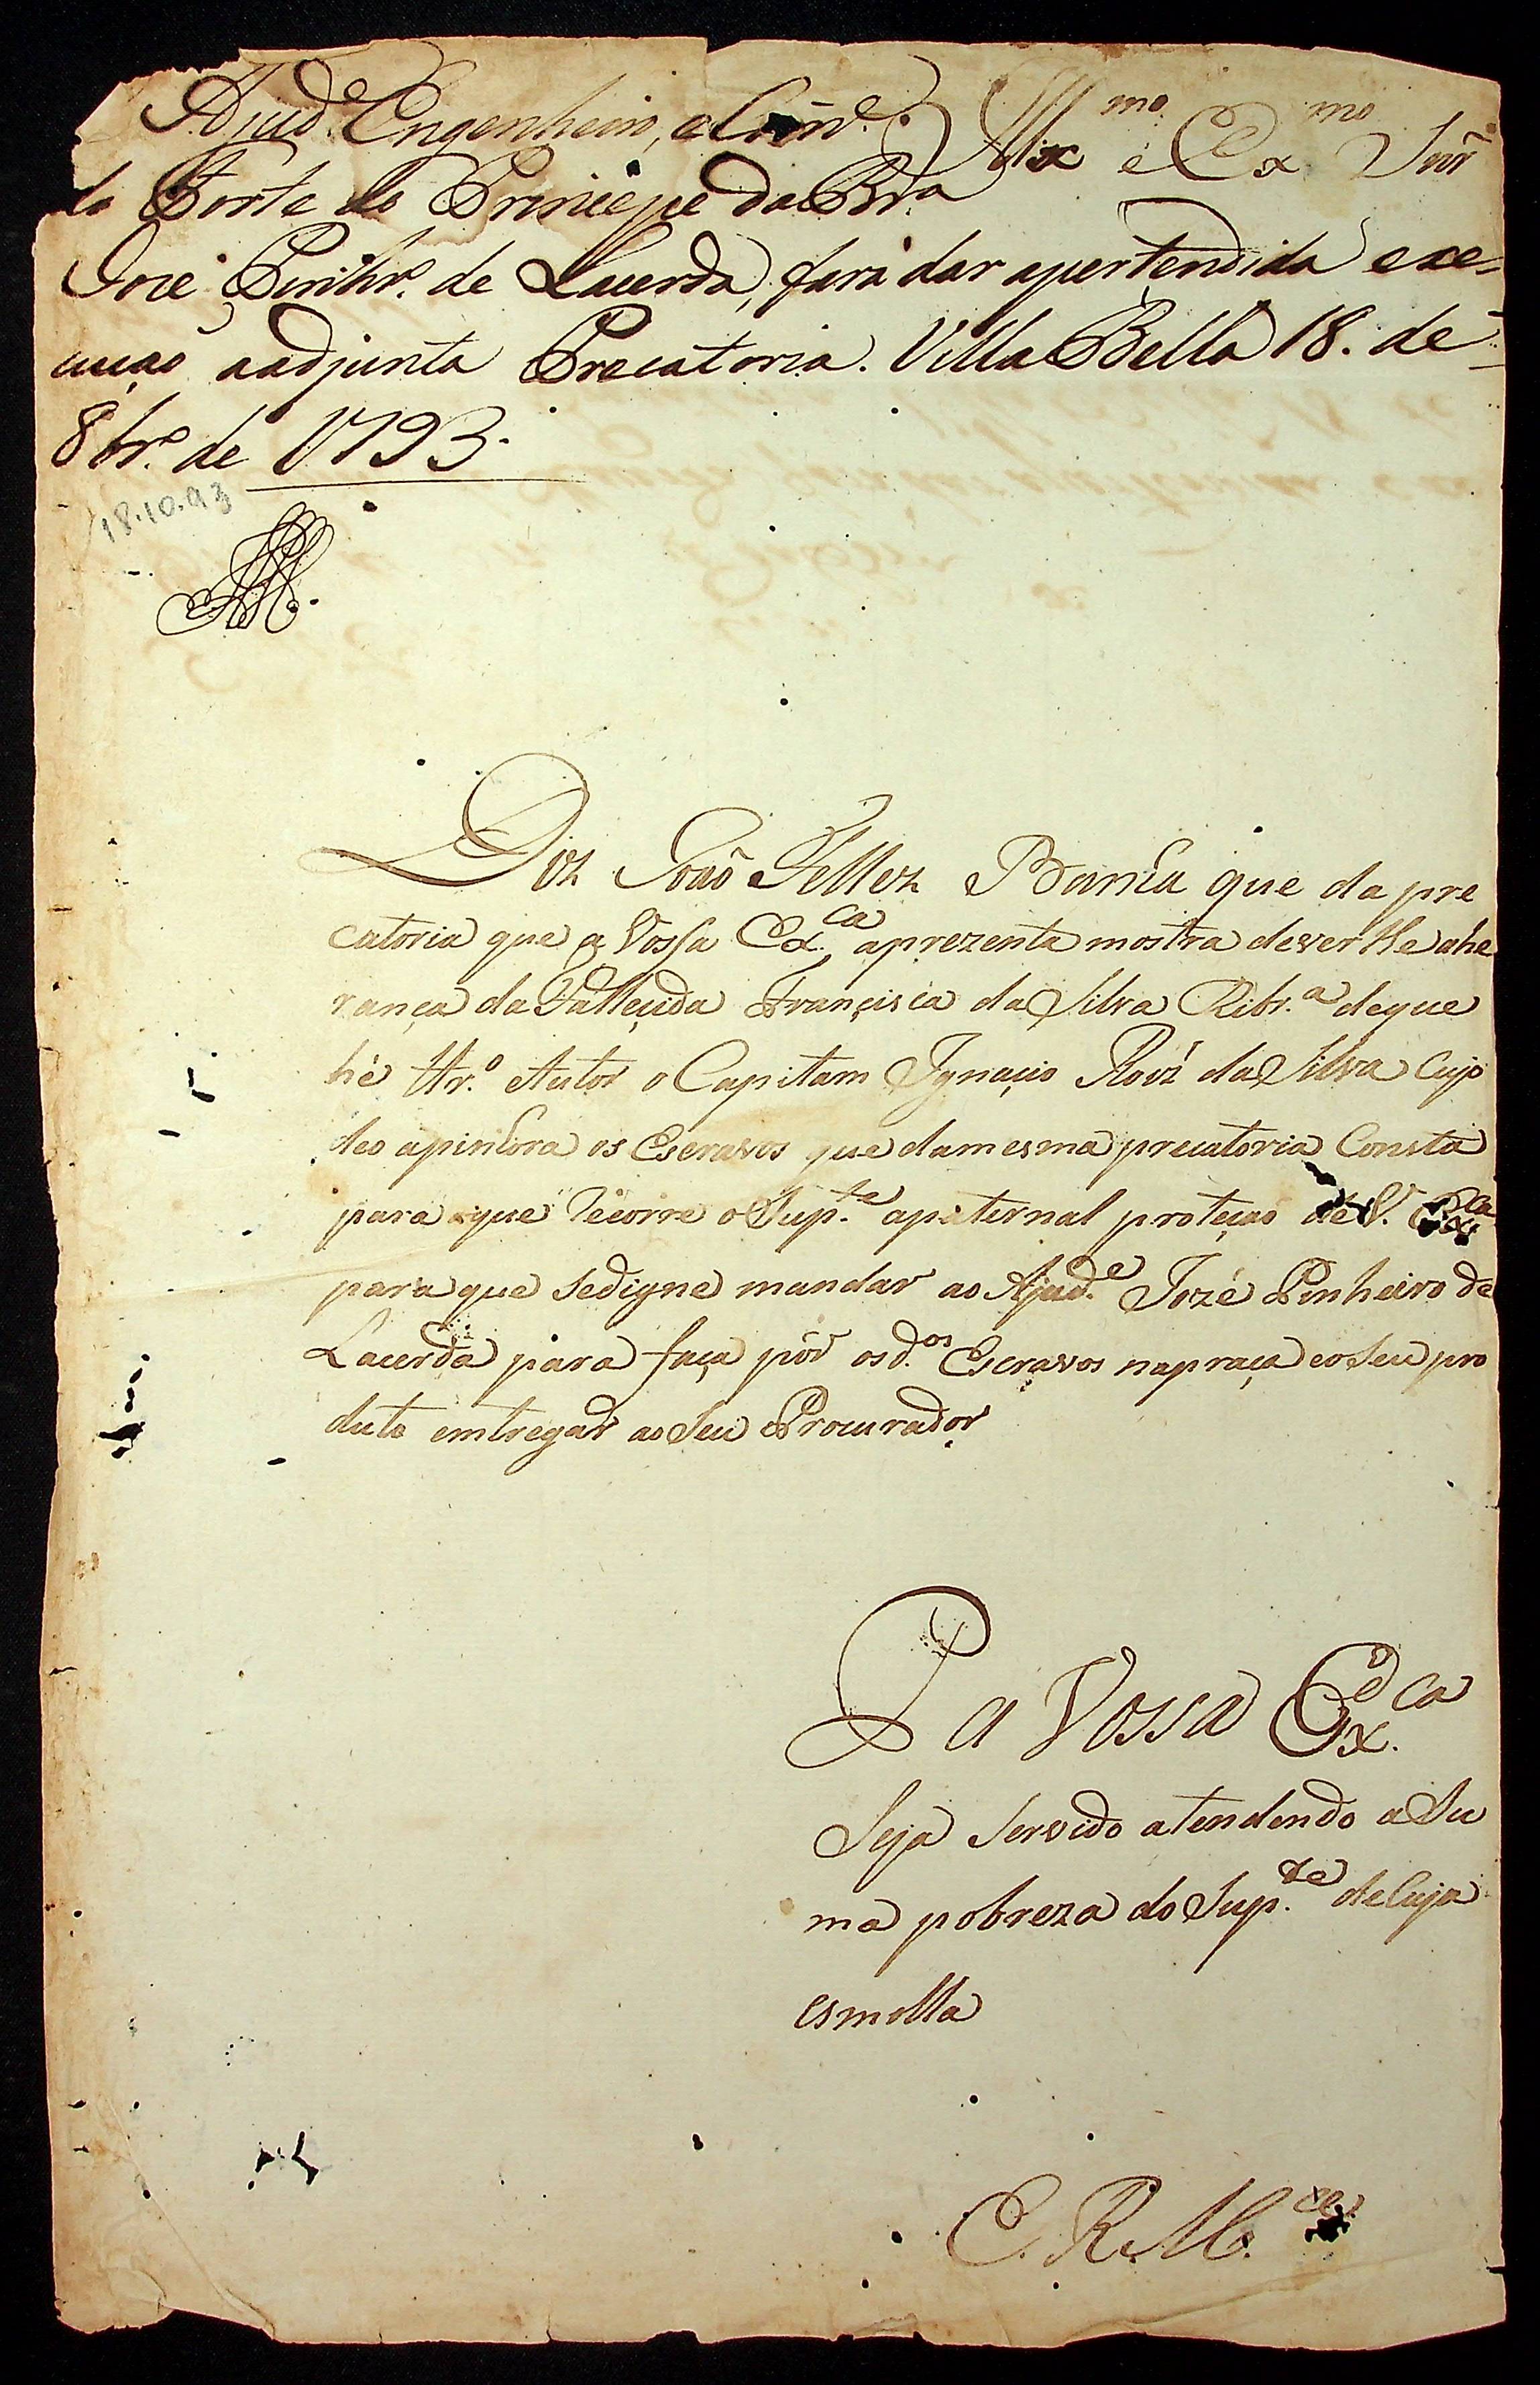 Ajud.e Engenheiro, e Com.e
do Forte do Principe da Bra
Ill.mo e Ex.mo Snr
José Pinhr.o de Lacerda, fará dar apertendida exe-
cuçaõ aadjunta Precatoria. Villa Bella 18. de
8br.o de 1793.
18.10.93
Diz Joaõ Tellez que da pre
catoria que a Vossa Ex.ca aprezenta mostra dever lhe ahe
rança da Falleçida Françisca da Silva Ribr.a deque
hé Autor o Capitam Ignaçio Roiz da Silva Cujo
deo apinhora os Escravos que damesma precatoria Consta
para que recorre o Sup.te apaternal proteçaõ de V. Ex.ca
para que sedigne mandar ao Ajud.e Jozé Pinheiro de
Lacerda para faça pôr osd.os Escravos napraça eo Seu pro
duto emtregar ao Seu Procurador
P a Vossa Ex.ca
Seja Servido atendendo a Su
ma pobreza do Sup.te de Cuja
esmolla
E. R. M.ce